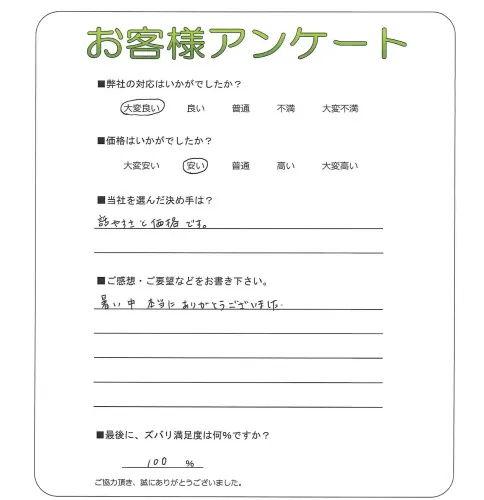 お客様アンケート
■弊社の対応はいかがでしたか？
大変良い 良い 普通 不満 大変不満
■価格はいかがでしたか？
大変安い 安い 普通 高い 大変高い
■当社を選んだ決め手は？
話やすさと価格です。
■ご感想・ご要望などをお書き下さい。
暑い中 本当にありがとうございました.
■最後に、ズバリ満足度は何%ですか？
100 %
ご協力頂き、誠にありがとうございました。